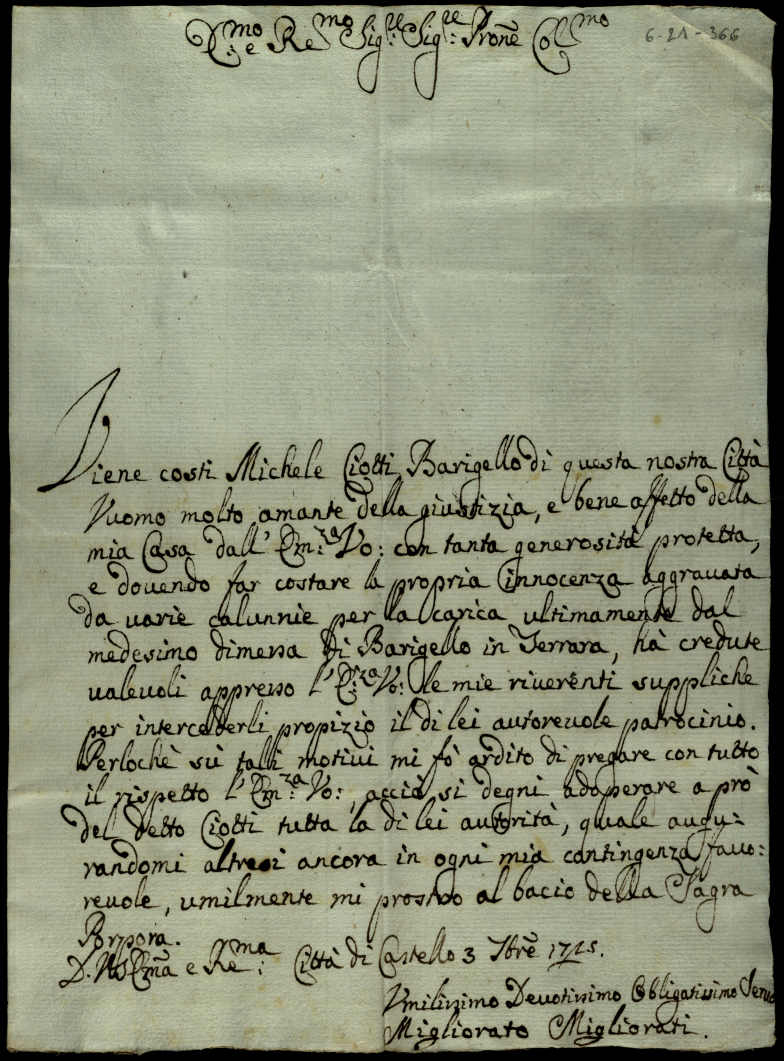 Em:mo e Re:mo Sig:re Sig:re Prone Col:mo
6-21-366
Viene costi Michele Ciotti Barigello di questa nostra Città
Vuomo molto amante della giustizia, e bene affetto della
mia Casa dall' Em:za Vo: con tanta generosità protetta,
e douendo far costare la propria Innocenza aggrauata
da uarie calunnie per la carica ultimamente dal
medesimo dimessa di Barigello in Ferrara, hà credute
ualeuoli appresso l' Em:za Vo: le mie riuerenti suppliche
per intercederli propizio il di lei autoreuole patrocinio.
Perlochè sù tali motiui mi fò ardito di pregare con tutto
il rispetto l' Em:za Vo:, acciò si degni adoperare a prò
del detto Ciotti tutta la di lei autorità, quale augu:
randomi altresi ancora in ogni mia contingenza fauo:
reuole, umilmente mi prostro al bacio della Sagra
Porpora.
D. V. Em̃a e Re:ma Città di Castello 3 7bre 1725.
Vmilissimo Deuotissimo Obligatissimo Seruo
Migliorato Migliorati.